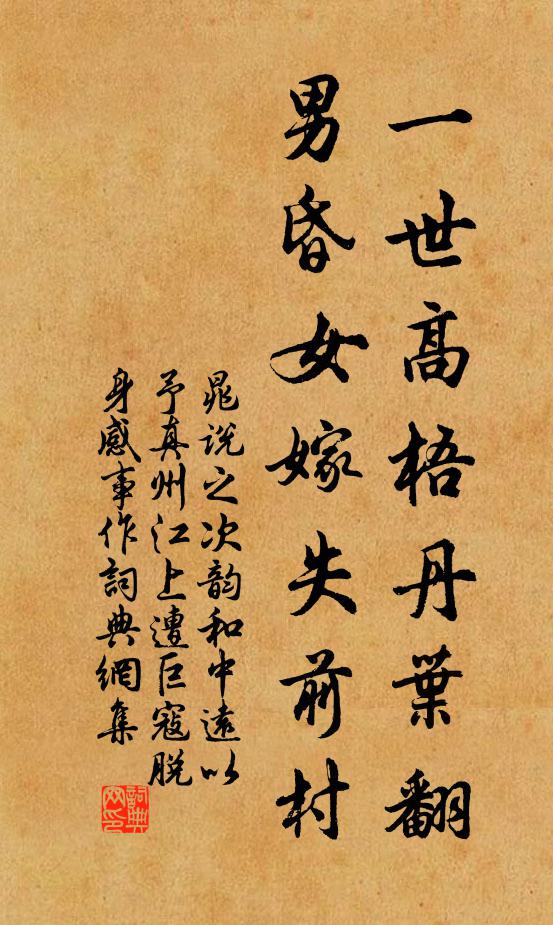 一世高梧丹葉翻
男昏女嫁失前村
晁説之次韵和中遠以
予真州江上遭巨寇脫
身感事作詞典網集
詞典網印